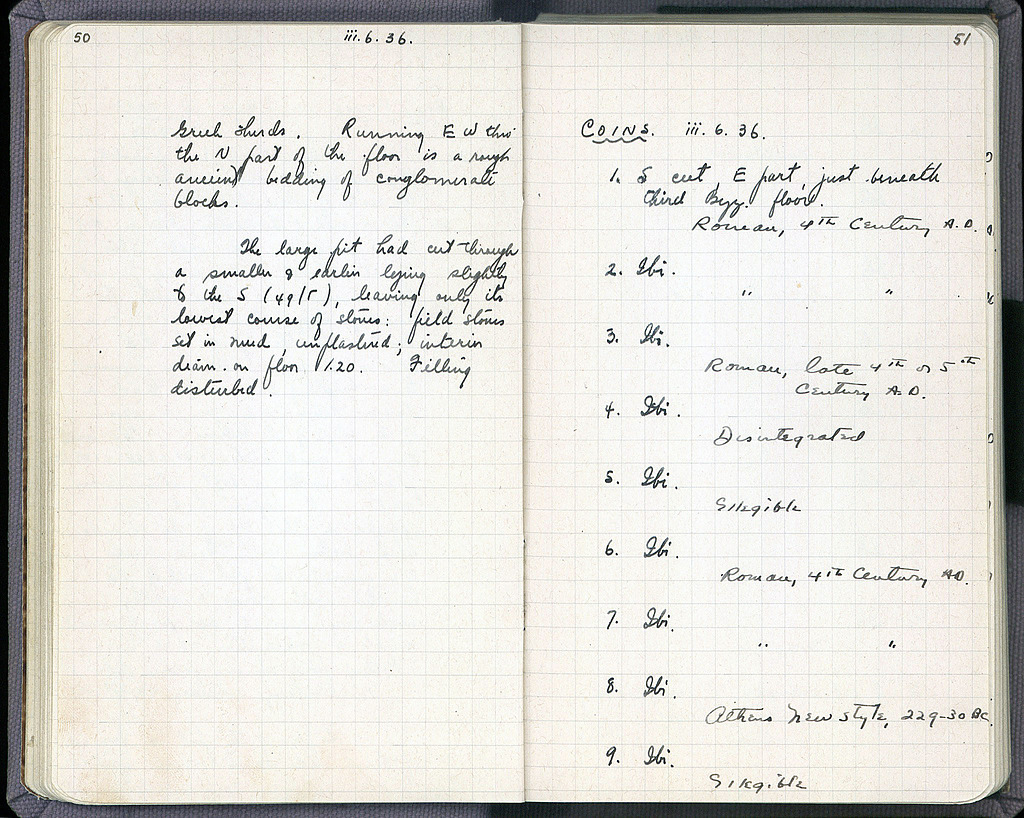 50
iii. 6. 36.
Greek sherds. Running E W thro'
the N part of the floor is a rough
ancient bedding of conglomerate
blocks.
The large pit had cut through
a smaller & earlier lying slightly
to the S (49/Γ), leaving only its
lowest course of stones: field stones
set in mud, unplastered; interior
diam. on floor 1.20. Filling
disturbed.
51
COINS. iii. 6. 36.
1. S cut, E part, just beneath
third Byz. floor.
Roman, 4th Century A.D.
2. Ibi.
" "
3. Ibi.
Roman, late 4th or 5th
Century A.D.
4. Ibi.
Disintegrated
5. Ibi.
Illegible
6. Ibi.
Roman, 4th Century AD.
7. Ibi.
" "
8. Ibi.
Athens New Style, 229-30 BC.
9. Ibi.
Illegible